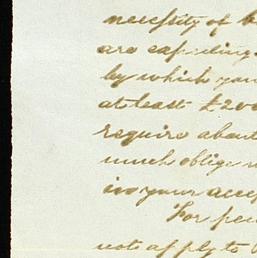 necessity of
are expiring
by which you
at least £200
require about
much oblige
in your acce
For pe
not apply to